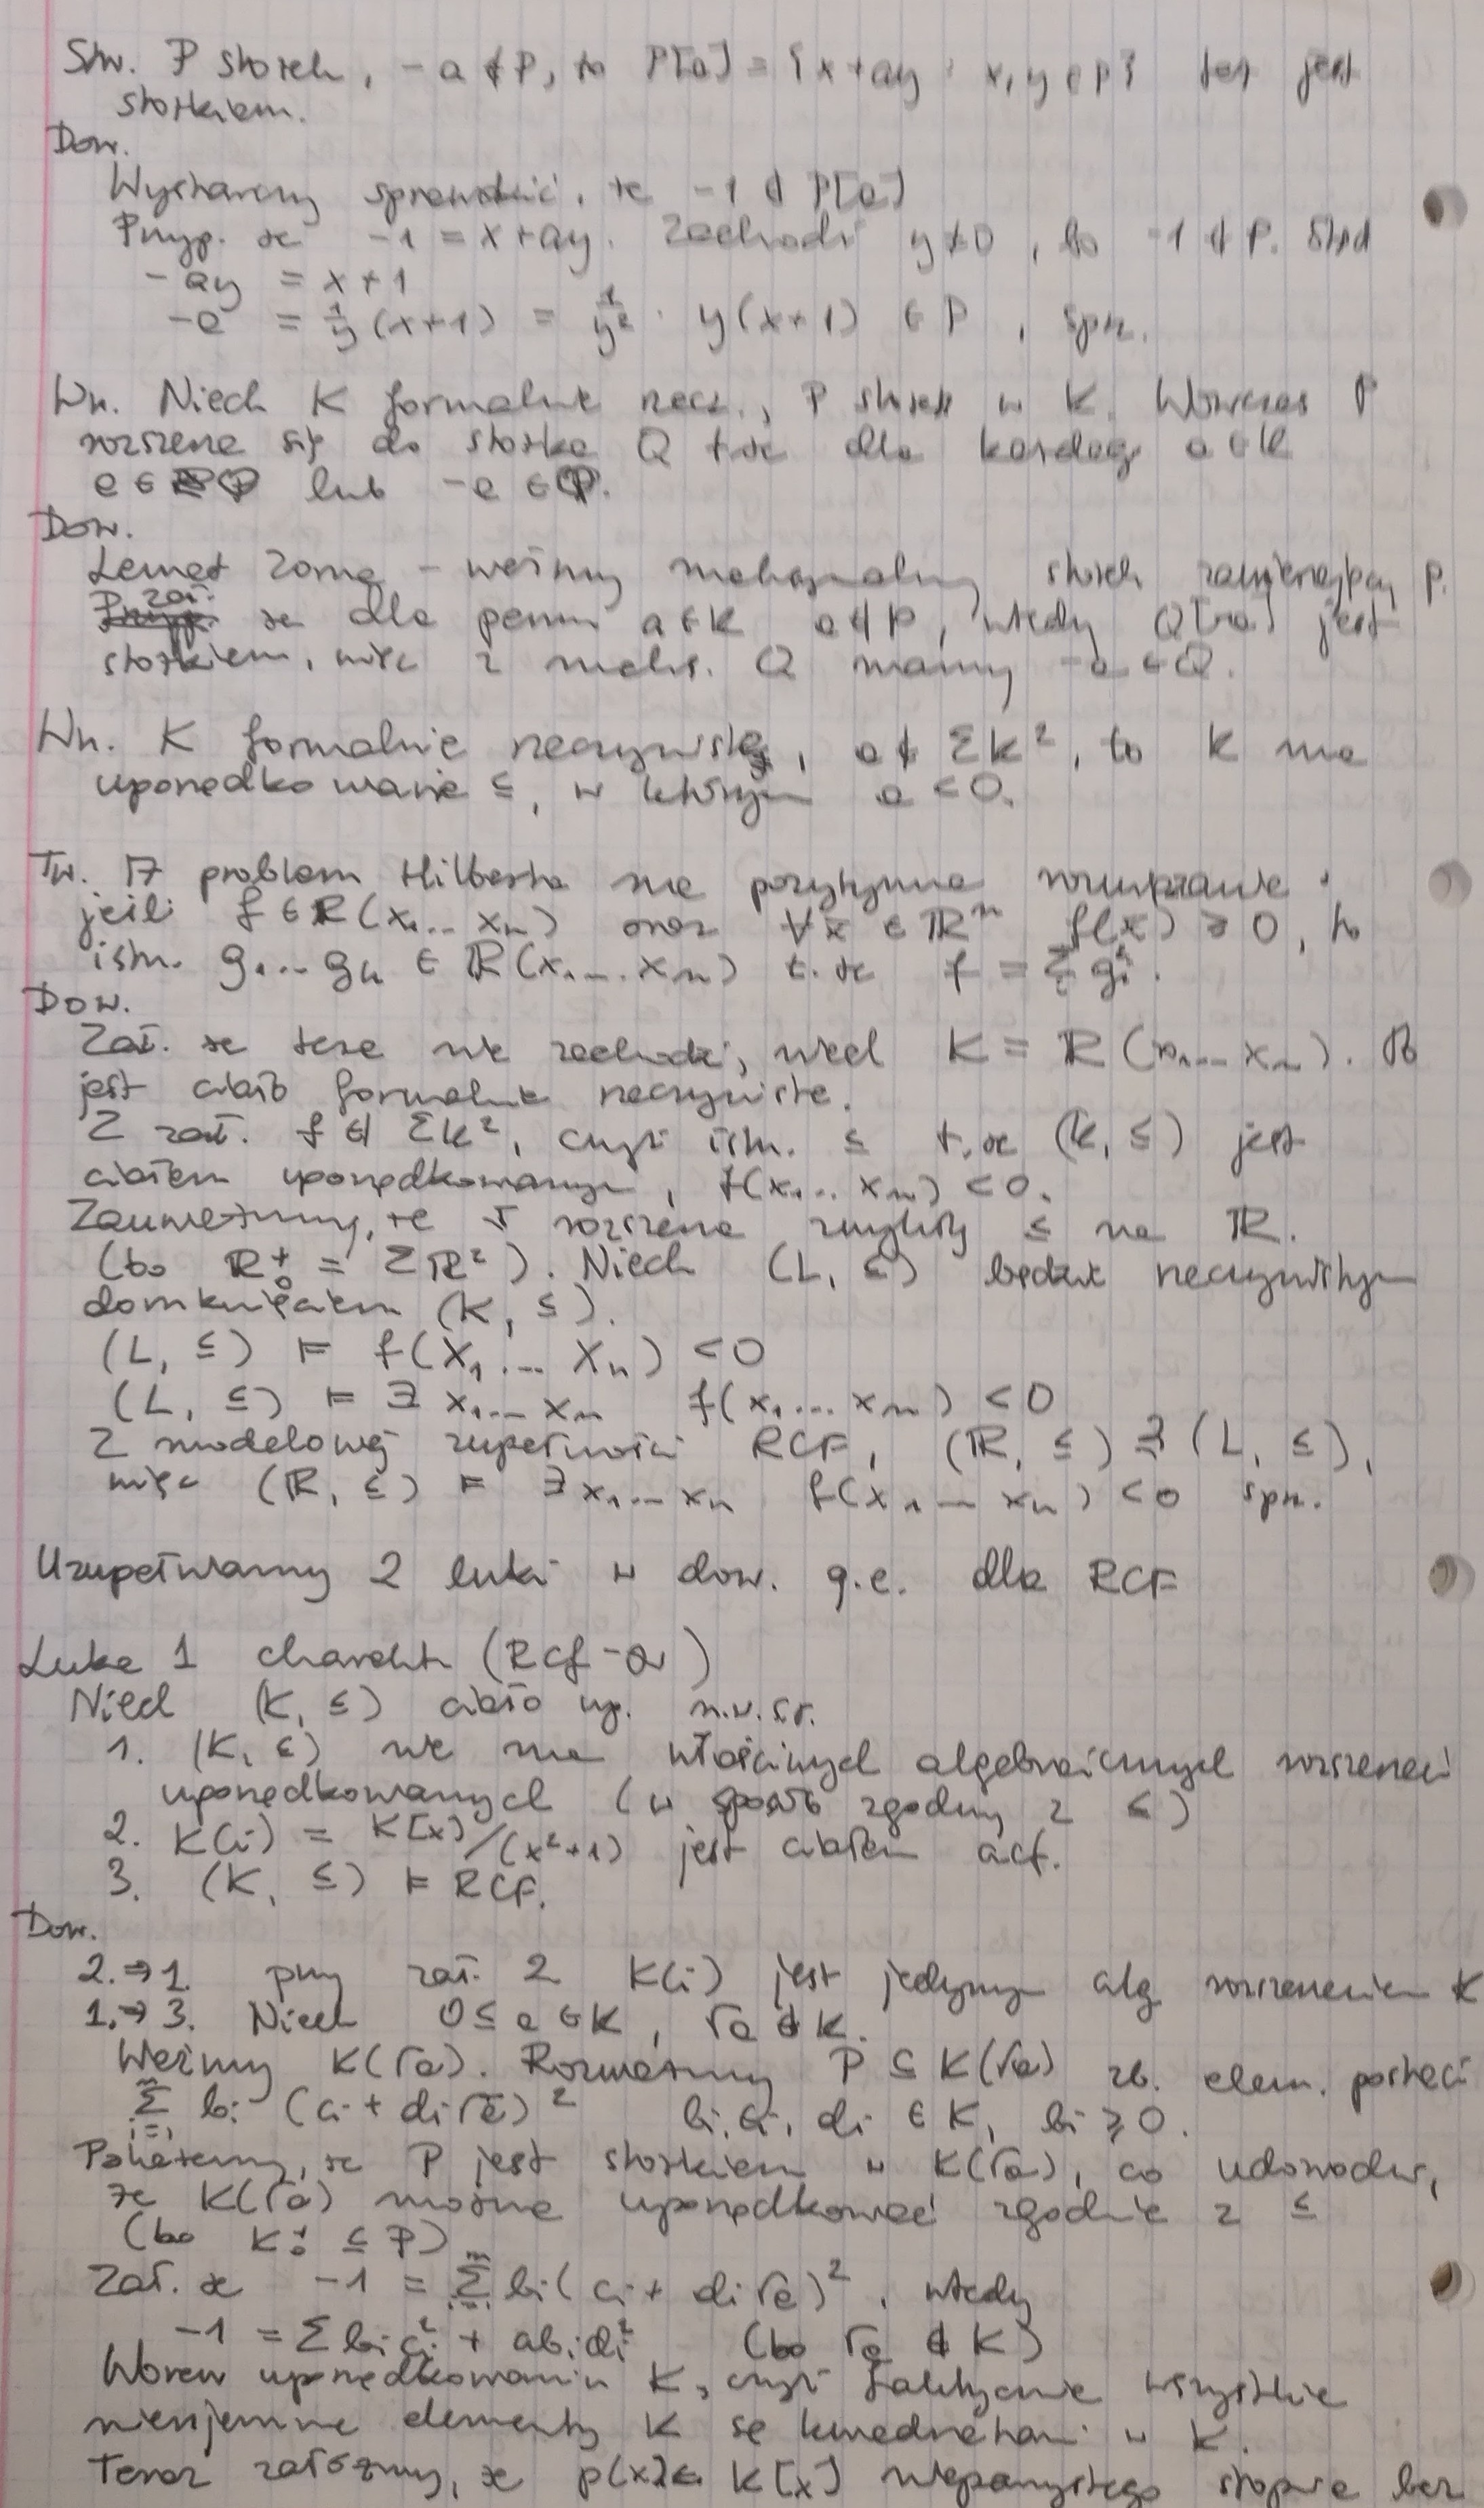 Stw. P stożek, -a ∉ P, to P[a] = {x+ay : x, y ∈ P} też jest
stożkiem.
Dow.
Wystarczy sprawdzić, że -1 ∉ P[a]
Przyp. że -1 = x+ay. Zachodzi y≠0, bo -1 ∉ P. Stąd
-ay = x+1
-a = 1/y (x+1) = 1/y² · y(x+1) ∈ P, sprz.
Wn. Niech K formalnie rzecz., P stożek w K. Wówczas P
rozszerza się do stożka Q t.że dla każdego a ∈ K
a ∈ Q lub -a ∈ Q.
Dow.
Lemat Zorna – weźmy maksymalny stożek zawierający P.
Zał. że dla pewn a ∈ K a ∉ P, wtedy Q[-a] jest
stożkiem, więc z maks. Q mamy -a ∈ Q.
Wn. K formalnie rzeczywiste, a ∉ ΣK², to K ma
uporządkowanie ≤, w którym a < 0.
Tw. 17 problem Hilberta ma pozytywne rozwiązanie :
jeśli f ∈ R(x₁...xₙ) oraz ∀x̄ ∈ Rⁿ f(x̄) ≥ 0, to
istn. g₁...gₖ ∈ R(x₁...xₙ) t.że f = Σ gᵢ².
Dow.
Zał. że teza nie zachodzi, niech K = R(x₁...xₙ). To
jest ciało formalnie rzeczywiste.
Z zał. f ∉ ΣK², czyli istn. ≤ t.że (K, ≤) jest
ciałem uporządkowanym, f(x₁...xₙ) < 0.
Zauważmy, że ≤ rozszerza zwykły ≤ na R.
(bo R₀⁺ = ΣR²). Niech (L, ≤) będzie rzeczywistym
domknięciem (K, ≤).
(L, ≤) ⊨ f(X₁...Xₙ) < 0
(L, ≤) ⊨ ∃ x₁...xₙ f(x₁...xₙ) < 0
Z modelowej zupełności RCF, (R, ≤) ≼ (L, ≤),
więc (R, ≤) ⊨ ∃x₁...xₙ f(x₁...xₙ) < 0 sprz.
Uzupełniamy 2 luki w dow. q.e. dla RCF
Luka 1 charakt (RCF-ów)
Niech (K, ≤) ciało up. n.w.s.r.
1. (K, ≤) nie ma właściwych algebraicznych rozszerzeń
uporządkowanych (w sposób zgodny z ≤)
2. K(i) = K[x]/(x²+1) jest ciałem acf.
3. (K, ≤) ⊨ RCF.
Dow.
2.⇒1. przy zał. 2 K(i) jest jedynym alg rozszerzeniem K
1.⇒3. Niech 0 ≤ a ∈ K, √a ∉ K.
Weźmy K(√a). Rozważmy P ⊆ K(√a) zb. elem. postaci
Σᵢ₌₁ᵐ bᵢ (cᵢ + dᵢ√a)² bᵢ, cᵢ, dᵢ ∈ K, bᵢ ≥ 0.
Pokażemy, że P jest stożkiem w K(√a), co udowodni,
że K(√a) można uporządkować zgodnie z ≤
(bo K₀⁺ ⊆ P)
Zał. że -1 = Σᵢ₌₁ᵐ bᵢ(cᵢ + dᵢ√a)², wtedy
-1 = Σ bᵢcᵢ² + abᵢdᵢ² (bo √a ∉ K)
Wbrew uporządkowaniu K, czyli faktycznie wszystkie
nieujemne elementy K są kwadratami w K.
Teraz załóżmy, że p(x) ∈ K[x] nieparzystego stopnia bez